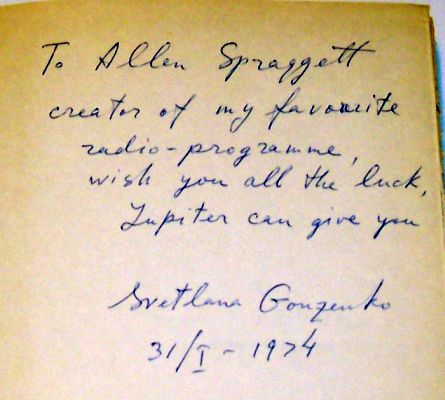 To Allen Spraggett
creator of my favourite
radio-programme,
wish you all the luck,
Jupiter can give you
Svetlana Gouzenko
31/I - 1974